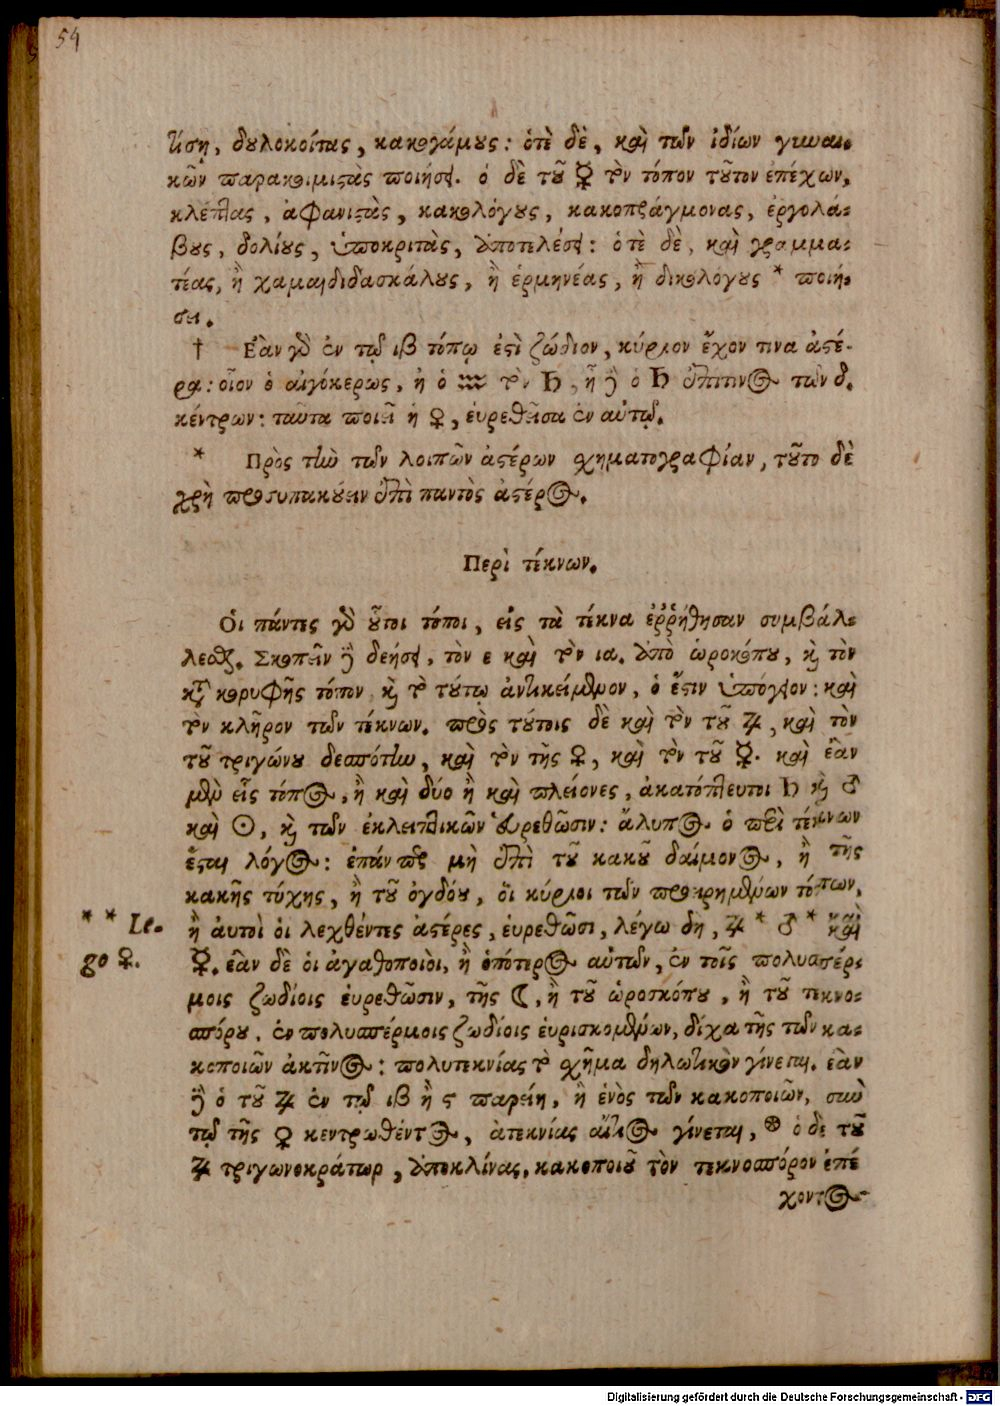 54
κίση, δουλοκοίτας, κακογάμους: ὁτὲ δὲ, καὶ τῶν ἰδίων γυναι-
κῶν παρακοιμιστὰς ποιήσει. ὁ δὲ τοῦ ☿ τὸν τόπον τοῦτον ἐπέχων,
κλέπτας, ἀφανιστὰς, κακολόγους, κακοπράγμονας, ἐργολά-
βους, δολίους, ὑποκριτὰς, ἀποτελέσει: ὁτὲ δὲ, καὶ γραμμα-
τέας, ἢ χαμαιδιδασκάλους, ἢ ἑρμηνέας, ἢ δικολόγους * ποιή-
σει.
† Ἐὰν γὰρ ἐν τῷ ιβ τόπῳ ἐστὶ ζώδιον, κύριον ἔχον τινα ἀστέ-
ρα: οἷον ὁ αἰγόκερως, ἢ ὁ ♒ τὸν ♄, ἢ ὁ ♄ ἐπί τινος τῶν δ.
κέντρων: ταῦτα ποιεῖ ἡ ♀, εὑρεθεῖσα ἐν αὐτῷ.
* Πρὸς τὴν τῶν λοιπῶν ἀστέρων σχηματογραφίαν, τοῦτο δὲ
χρὴ προσυπακούειν ἐπὶ παντὸς ἀστέρος.
Περὶ τέκνων.
Οἱ πάντες γὰρ οὗτοι τόποι, εἰς τὰ τέκνα ἐῤῥήθησαν συμβάλ-
λεσθαι. Σκοπεῖν δὲ δεήσει, τὸν ε καὶ τὸν ια. ἀπὸ ὡροσκόπου, καὶ τὸν
κατὰ κορυφῆς τόπον καὶ τὸ τούτῳ ἀντικείμενον, ὅ ἐστιν ὑπόγειον: καὶ
τὸν κλῆρον τῶν τέκνων. πρὸς τούτοις δὲ καὶ τὸν τοῦ ♃, καὶ τὸν
τοῦ τριγώνου δεσπότην, καὶ τὸν τῆς ♀, καὶ τὸν τοῦ ☿. καὶ ἐὰν
μὲν εἷς τόπος, ἢ καὶ δύο ἢ καὶ πλείονες, ἀκατόπτευτοι ♄ καὶ ♂
καὶ ☉, καὶ τῶν ἐκλειπτικῶν εὑρεθῶσιν: ἄλυπος ὁ περὶ τέκνων
ἔσται λόγος: ἐπάν περ μὴ ἐπὶ τοῦ κακοῦ δαίμονος, ἢ τῆς
κακῆς τύχης, ἢ τοῦ ὀγδόου, οἱ κύριοι τῶν προειρημένων τόπων,
ἢ αὐτοὶ οἱ λεχθέντες ἀστέρες, εὑρεθῶσι, λέγω δὴ, ♃ * ♂ * καὶ
* * Le-
go ♀.
☿. ἐὰν δὲ οἱ ἀγαθοποιοὶ, ἢ ὁπότερος αὐτῶν, ἐν τοῖς πολυσπέρ-
μοις ζωδίοις εὑρεθῶσιν, τῆς ☾, ἢ τοῦ ὡροσκόπου, ἢ τοῦ τεκνο-
σπόρου, ἐν πολυσπέρμοις ζωδίοις εὑρισκομένων, δίχα τῆς τῶν κα-
κοποιῶν ἀκτῖνος: πολυτεκνίας τὸ σχῆμα δηλωτικὸν γίνεται. ἐὰν
δὲ ὁ τοῦ ♃ ἐν τῷ ιβ ἢ ϛ παρείη, ἢ ἑνὸς τῶν κακοποιῶν, σὺν
τῷ τῆς ♀ κεντρωθέντος, ἀτεκνίας αἴτιος γίνεται, ⊛ ὁ δὲ τοῦ
♃ τριγωνοκράτωρ, ἀποκλίνας, κακοποιοῦ τὸν τεκνοσπόρον ἐπέ
χοντος
Digitalisierung gefördert durch die Deutsche Forschungsgemeinschaft - DFG